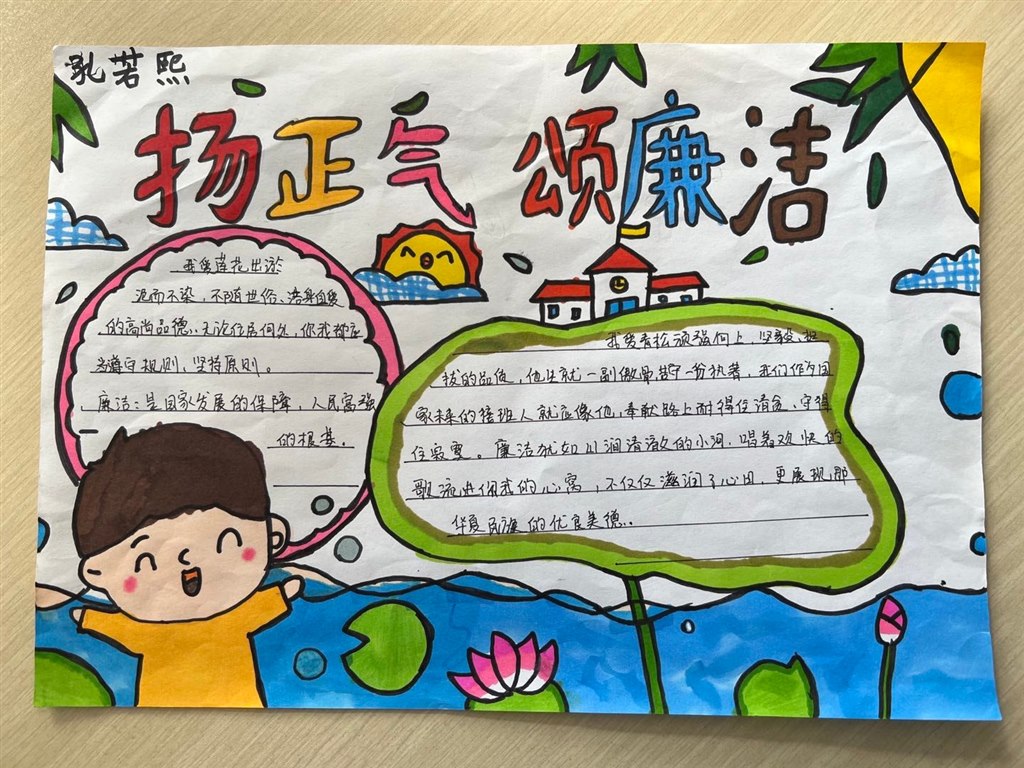 孔若熙
扬正气 颂廉洁
我爱莲花出淤
泥而不染,不随世俗、洁身自爱
的高尚品德。无论住居何处,你我都应
当遵守规则,坚持原则。
廉洁:是国家发展的保障,人民富强
的根基。
我赞青松顽强向上,坚毅、挺
拔的品质,他生就一副傲骨,
一份执著,我们作为国
家未来的接班人就应像他,奉献路上耐得住清贫、守得
住寂寞。廉洁犹如山涧清澈的小河,唱着欢快的
歌流进你我的心窝,不仅仅滋润了心田,更展现那
华夏民族的优良美德。